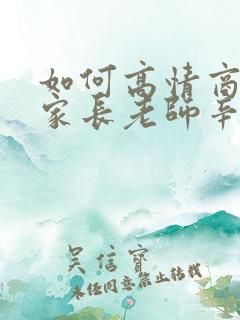 如何高情商
家長老師辛
吳信寶
未经同意禁止转载